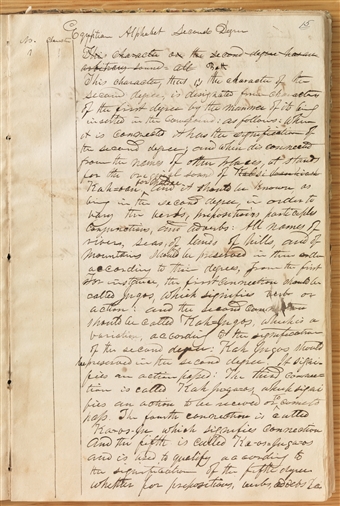 15
Egyptian Alphabet Second Degree
No. Char
This character in the second degree has an
arbitrary sound: all
This character, that is the character of the
second degree, is designated from character
of the first degree by the manner of its being
inserted in the compound: as follows: When
it is connected it has the signification of
the second degree; and when disconnected
from the names of other places, it stands
for the original sound of
and it should be known as
being in the second degree, in order to
vary the verbs, prepositions, participles
conjunctions, and adverbs: All names of
rivers, seas, of lands of hills, and of
mountains should be preserved in this order
according to their degrees, from the first
For instance, the first connection should be
called Jugos, which signifies verb or
action: and the second connection
should be called Kah Jugos, which is a
variation, according to the signification
of the second degree: Kah Jugos should
be preserved in the second degree. It signi-
fies an action passed: The third connec-
tion is called Kah jugaos, which signi
fies an action to be received or come to
pass. The fourth connection is called
Kavos-Ju which signifies connection
And the fifth is called Kavos-jugaos
and is used to qualify according to
the signification of the fifth degree
whether for prepositions, verbs, adverbs &c